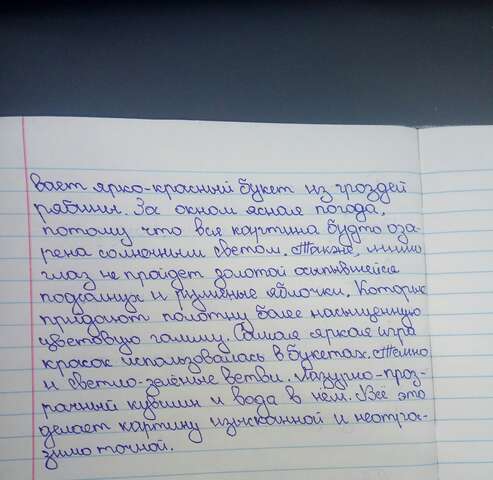 вает ярко-красный букет из гроздей
рябины. За окном ясная погода,
потому что вся картина будто оза-
рена солнечным светом. Также, мимо
глаз не пройдет золотой осыпывшейся
подсолнух и румяные яблочки. Которые
придают полотну более насыщенную
цветовую гамму. Самая яркая игра
красок использовалась в букетах. Темно
и светло-зелёные ветви. Лазурно-проз-
рачный кувшин и вода в нем. Всё это
делает картину изысканной и неотра-
зимо точной.